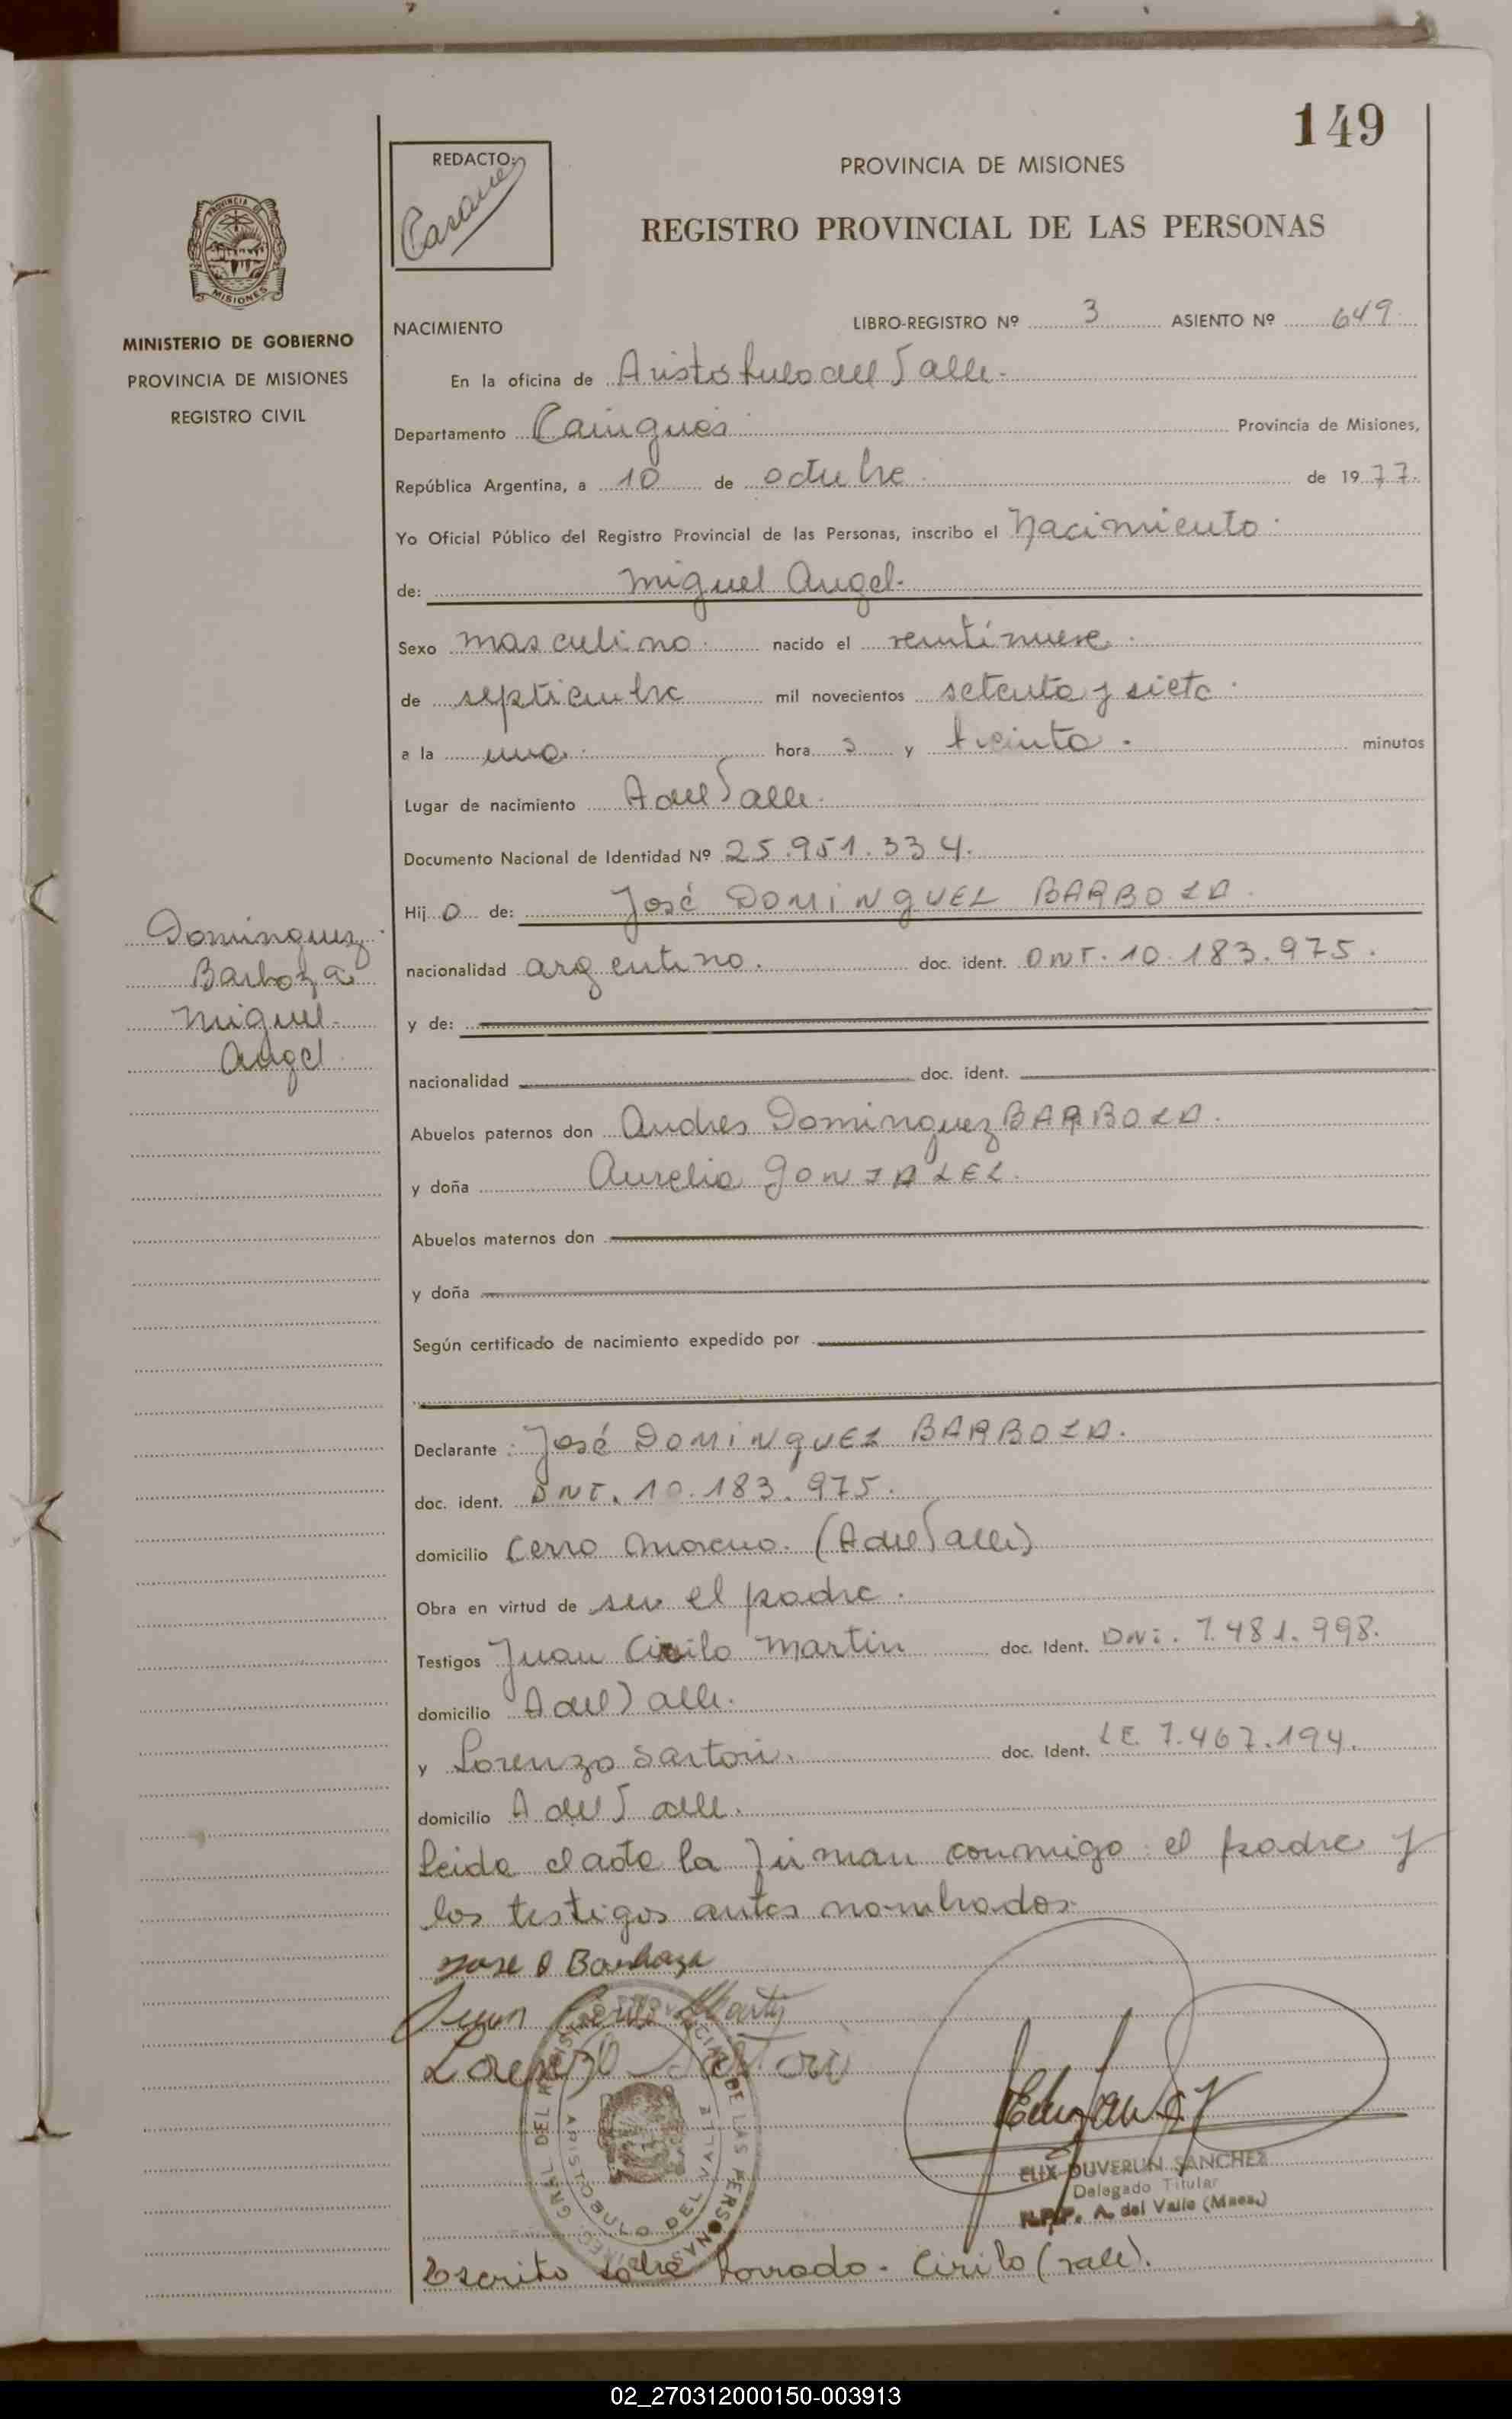 149
REDACTO:
PROVINCIA DE MISIONES
REGISTRO PROVINCIAL DE LAS PERSONAS
PROVINCIA DE
MISIONES
MINISTERIO DE GOBIERNO
PROVINCIA DE MISIONES
REGISTRO CIVIL
NACIMIENTO LIBRO-REGISTRO Nº 3 ASIENTO Nº 649
En la oficina de Aristóbulo del Valle.
Departamento Cainguás Provincia de Misiones,
República Argentina, a 10 de octubre de 1977.
Yo Oficial Público del Registro Provincial de las Personas, inscribo el Nacimiento
de: Miguel Angel.
Sexo masculino. nacido el veintinueve.
de septiembre mil novecientos setenta y siete.
a la una hora s y treinta. minutos
Lugar de nacimiento A del Valle.
Documento Nacional de Identidad Nº 25.951.334.
Hijo de: José DOMINGUEZ BARBOZA.
Dominguez
Barboza
Miguel
Angel
nacionalidad argentino. doc. ident. DNI. 10.183.975.
y de:
nacionalidad doc. ident.
Abuelos paternos don Andres Dominguez BARBOZA.
y doña Aurelia GONZALEZ.
Abuelos maternos don
y doña
Según certificado de nacimiento expedido por
Declarante: José DOMINGUEZ BARBOZA.
doc. ident. DNI. 10.183.975.
domicilio Cerro Moreno. (A del Valle)
Obra en virtud de ser el padre.
Testigos Juan Cirilo Martin doc. Ident. DNI. 7.481.998.
domicilio A del Valle.
y Lorenzo Sartori. doc. Ident. LE. 7.467.194.
domicilio A del Valle.
Leida el acta la firman conmigo el padre y
los testigos antes nombrados.
Jose D Barboza
Juan Cirilo Martin
Lorenzo Sartori
ARISTOBULO DEL VALLE
ELIX DUVERLIN SANCHEZ
Delegado Titular
R.P.P. A. del Valle (Mnes.)
Escrito sobre borrado. Cirilo (vale).
02_270312000150-003913